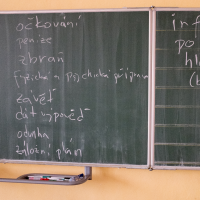 očkování
peníze
zbraň
fyzická a psychická příprava
závěť
dát výpověď
odvaha
záložní plán
inf
po
hl
(